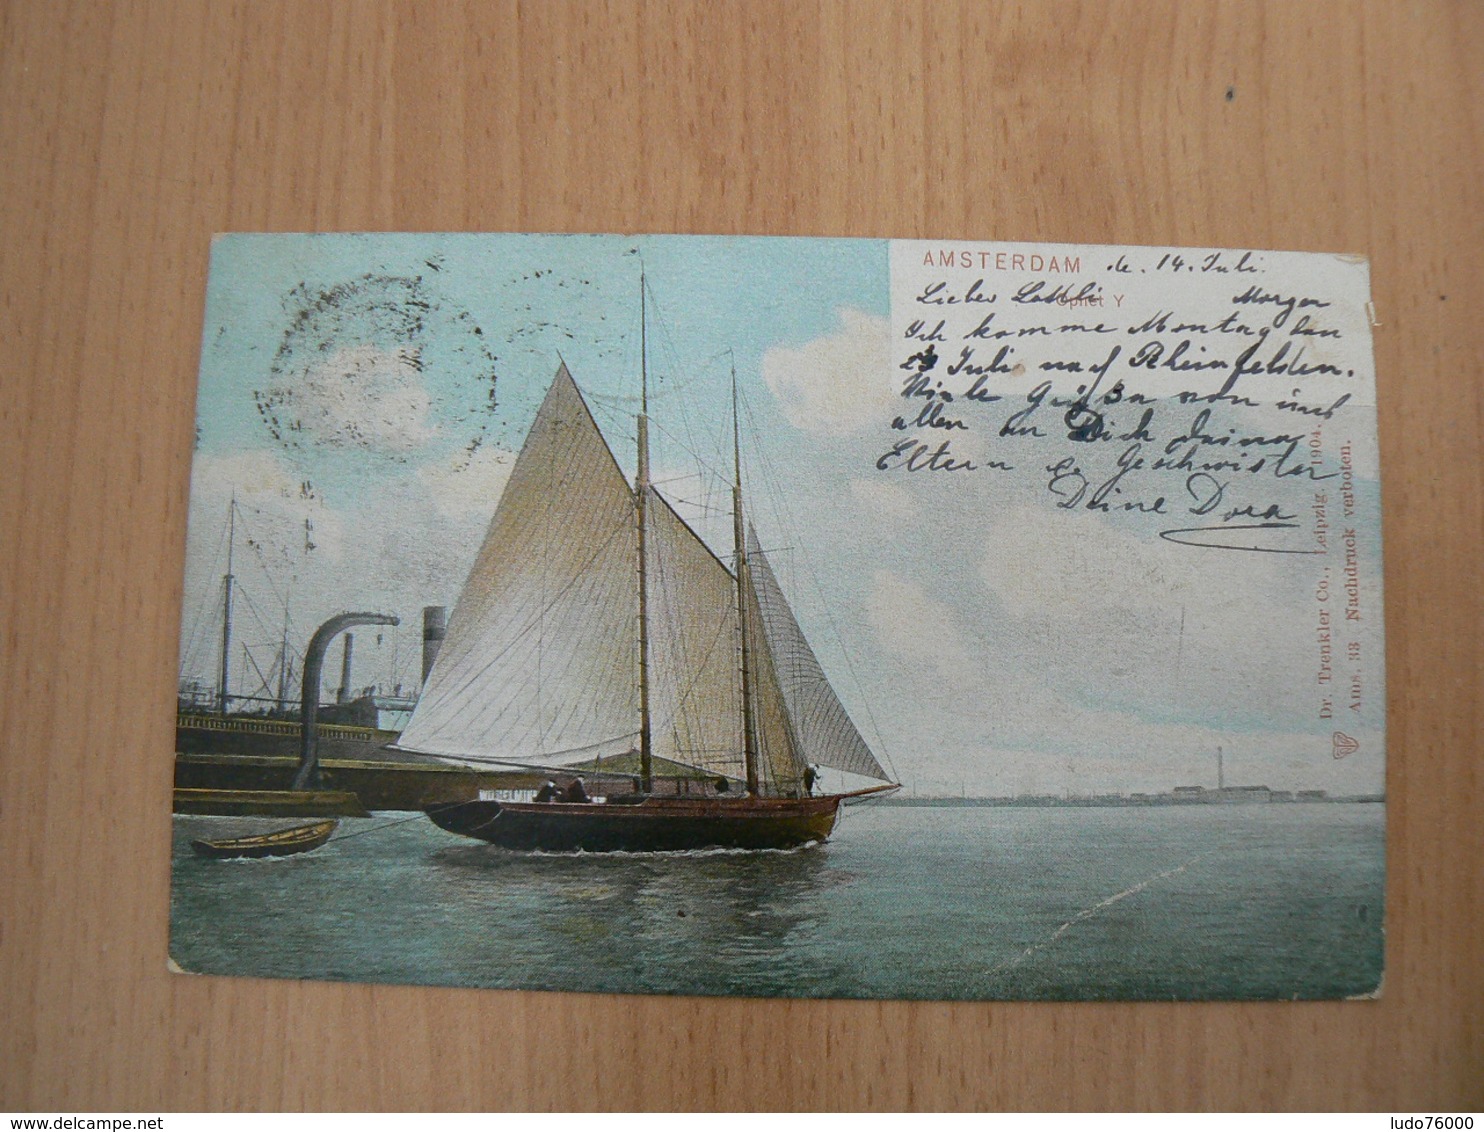 AMSTERDAM de. 14. Juli.
Op het Y
Lieber Morgen
Ich komme Montag den
Juli nach Rheinfelden.
Viele Grüße von uns
allen an Dich deine
Eltern & Geschwister
Deine Dora
Dr. Trenkler Co., Leipzig. 1904.
Ams. 33 Nachdruck verboten.
ludo76000